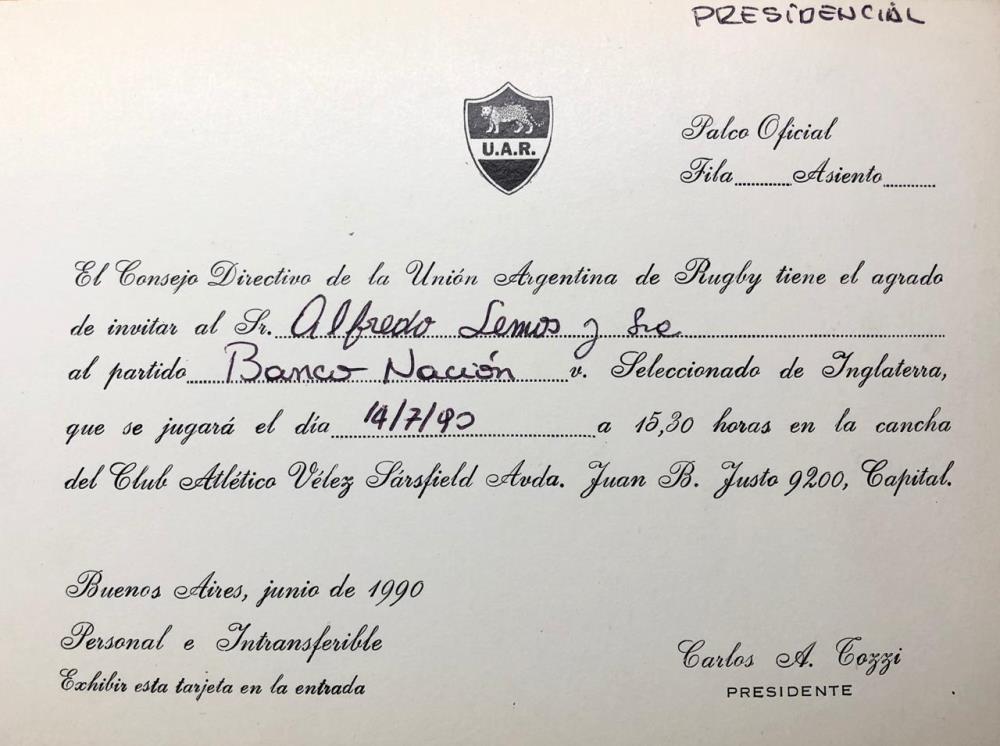 PRESIDENCIAL
U.A.R.
Palco Oficial
Fila.........Asiento.........
El Consejo Directivo de la Unión Argentina de Rugby tiene el agrado
de invitar al Sr. Alfredo Lemos y Sra
al partido Banco Nación v. Seleccionado de Inglaterra,
que se jugará el día 14/7/90 a 15,30 horas en la cancha
del Club Atlético Vélez Sársfield Avda. Juan B. Justo 9200, Capital.
Buenos Aires, junio de 1990
Personal e Intransferible
Exhibir esta tarjeta en la entrada
Carlos A. Tozzi
PRESIDENTE